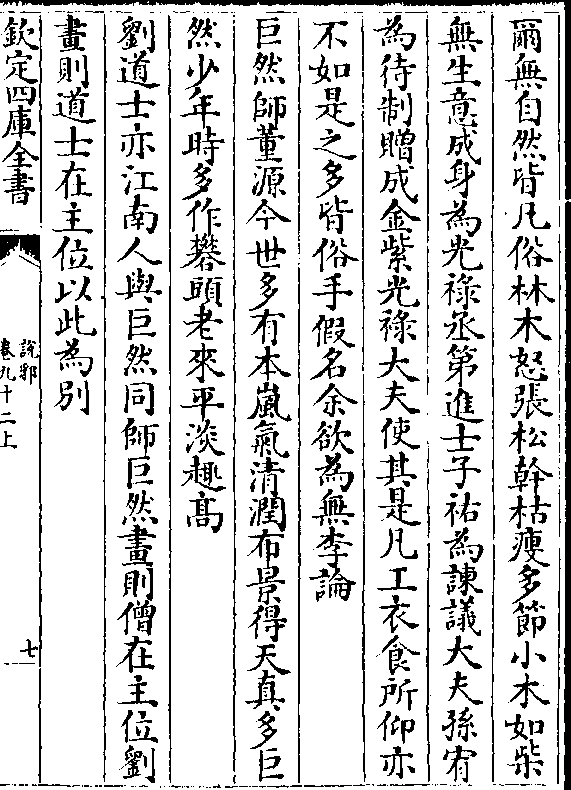 爾無自然皆凡俗林木怒張松幹枯瘦多節小木如柴
無生意成身為光祿丞第進士子祐為諫議大夫孫宥
為待制贈成金紫光祿大夫使其是凡工衣食所仰亦
不如是之多皆俗手假名余欲為無李論
巨然師董源今世多有本嵐氣清潤布景得天真多巨
然少年時多作礬頭老來平淡趣髙
劉道士亦江南人與巨然同師巨然畫則僧在主位劉
畫則道士在主位以此為別
欽定四庫全書
說郛
卷九十二上
七